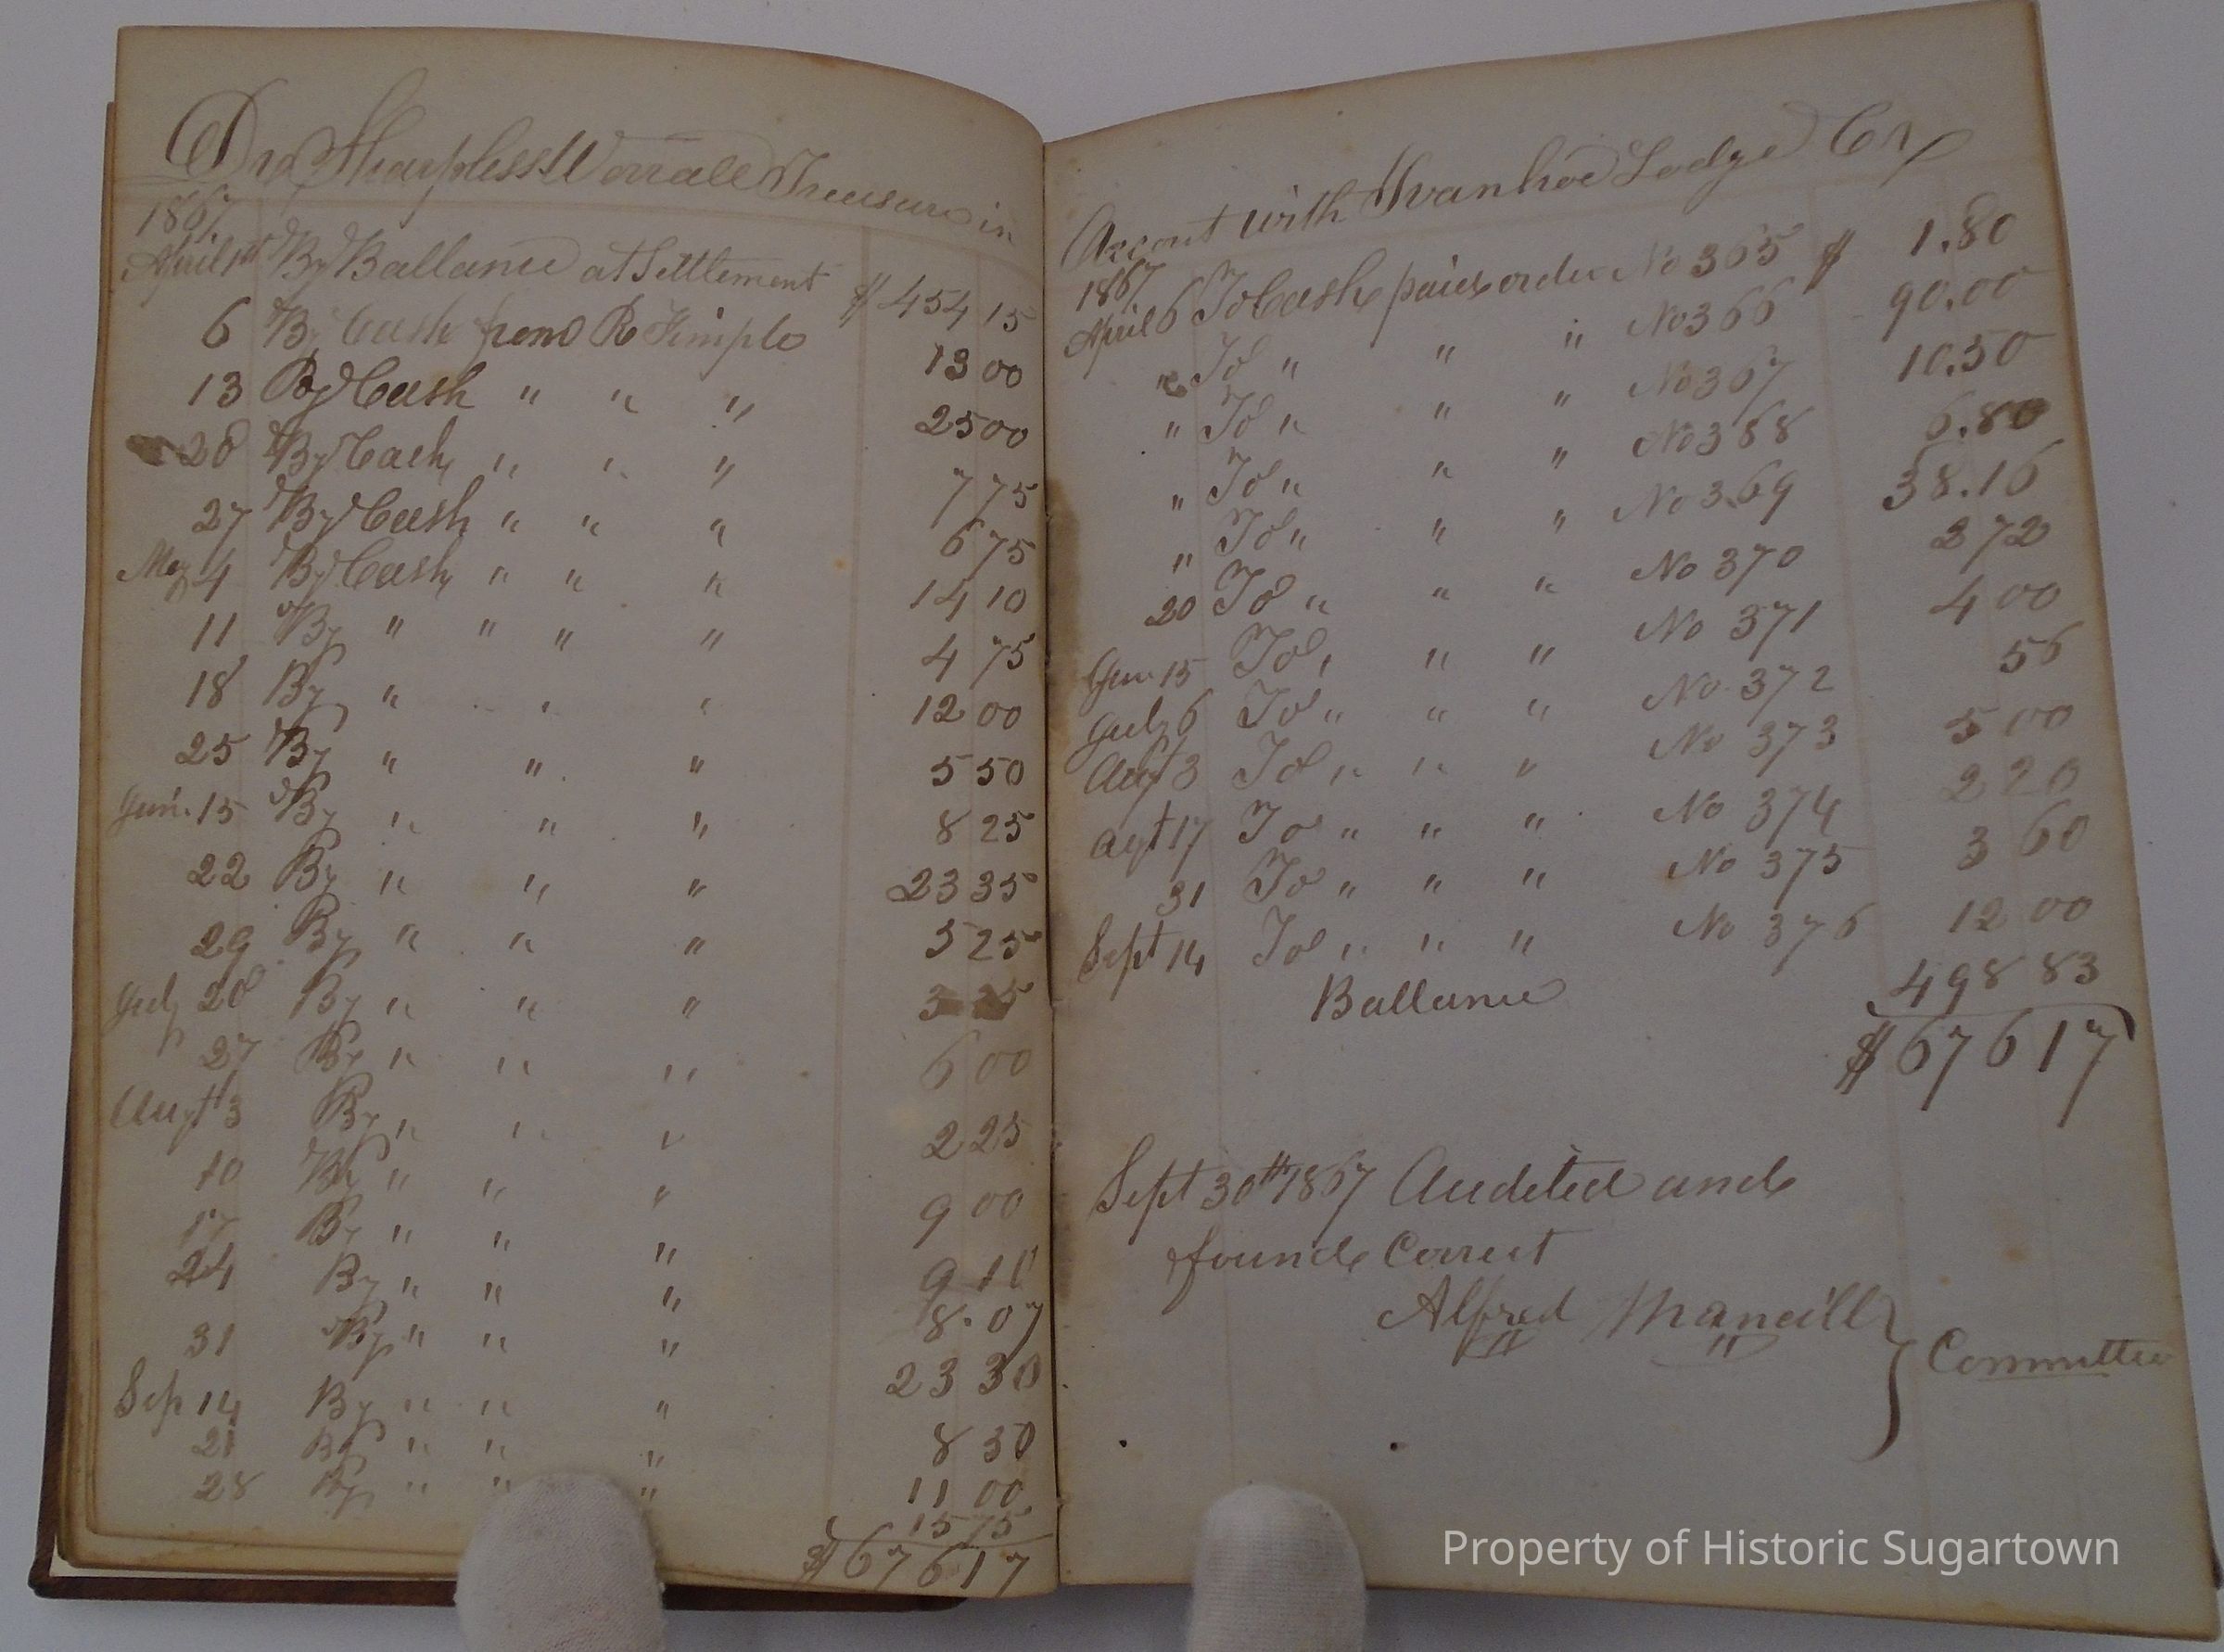 Dr Sharpless Worrall Treasure in
1867
April 1st By Ballance at Settlement $454 15
6 By Cash from R Himple 13 00
13 By Cash " " " 25 00
20 By Cash " " " 7 75
27 By Cash " " " 6 75
May 4 By Cash " " " 14 10
11 By " " " " 4 75
18 By " " " 12 00
25 By " " " 5 50
Jun. 15 By " " " 8 25
22 By " " " 23 35
29 By " " " 5 25
July 20 By " " "
27 By " " " 6 00
Augt 3 By " " " 2 25
10 By " " " 9 00
17 By " " "
24 By " " " 8.07
31 By " " " 23 30
Sep 14 By " " " 8 30
21 By " " " 11 00
28 By " " " 15 75
$676 17
Accout with Ivanhoe Lodge Cr
1867
April 6 To Cash paid order No 365 $ 1.80
" To " " " No 366 90.00
" To " " " No 367 10.50
" To " " " No 368 6.80
" To " " " No 369 38.16
20 To " " " No 370 2 72
Jun 15 To " " " No 371 4 00
July 6 To " " " No 372 56
Augt 3 To " " " No 373 5 00
Agt 17 To " " " No 374 2 20
31 To " " " No 375 3 60
Sept 14 To " " " No 376 12 00
Ballance 498 83
$676 17
Sept 30th 1867 Audited and
found Correct
Alfred Mancill } Committee
Property of Historic Sugartown